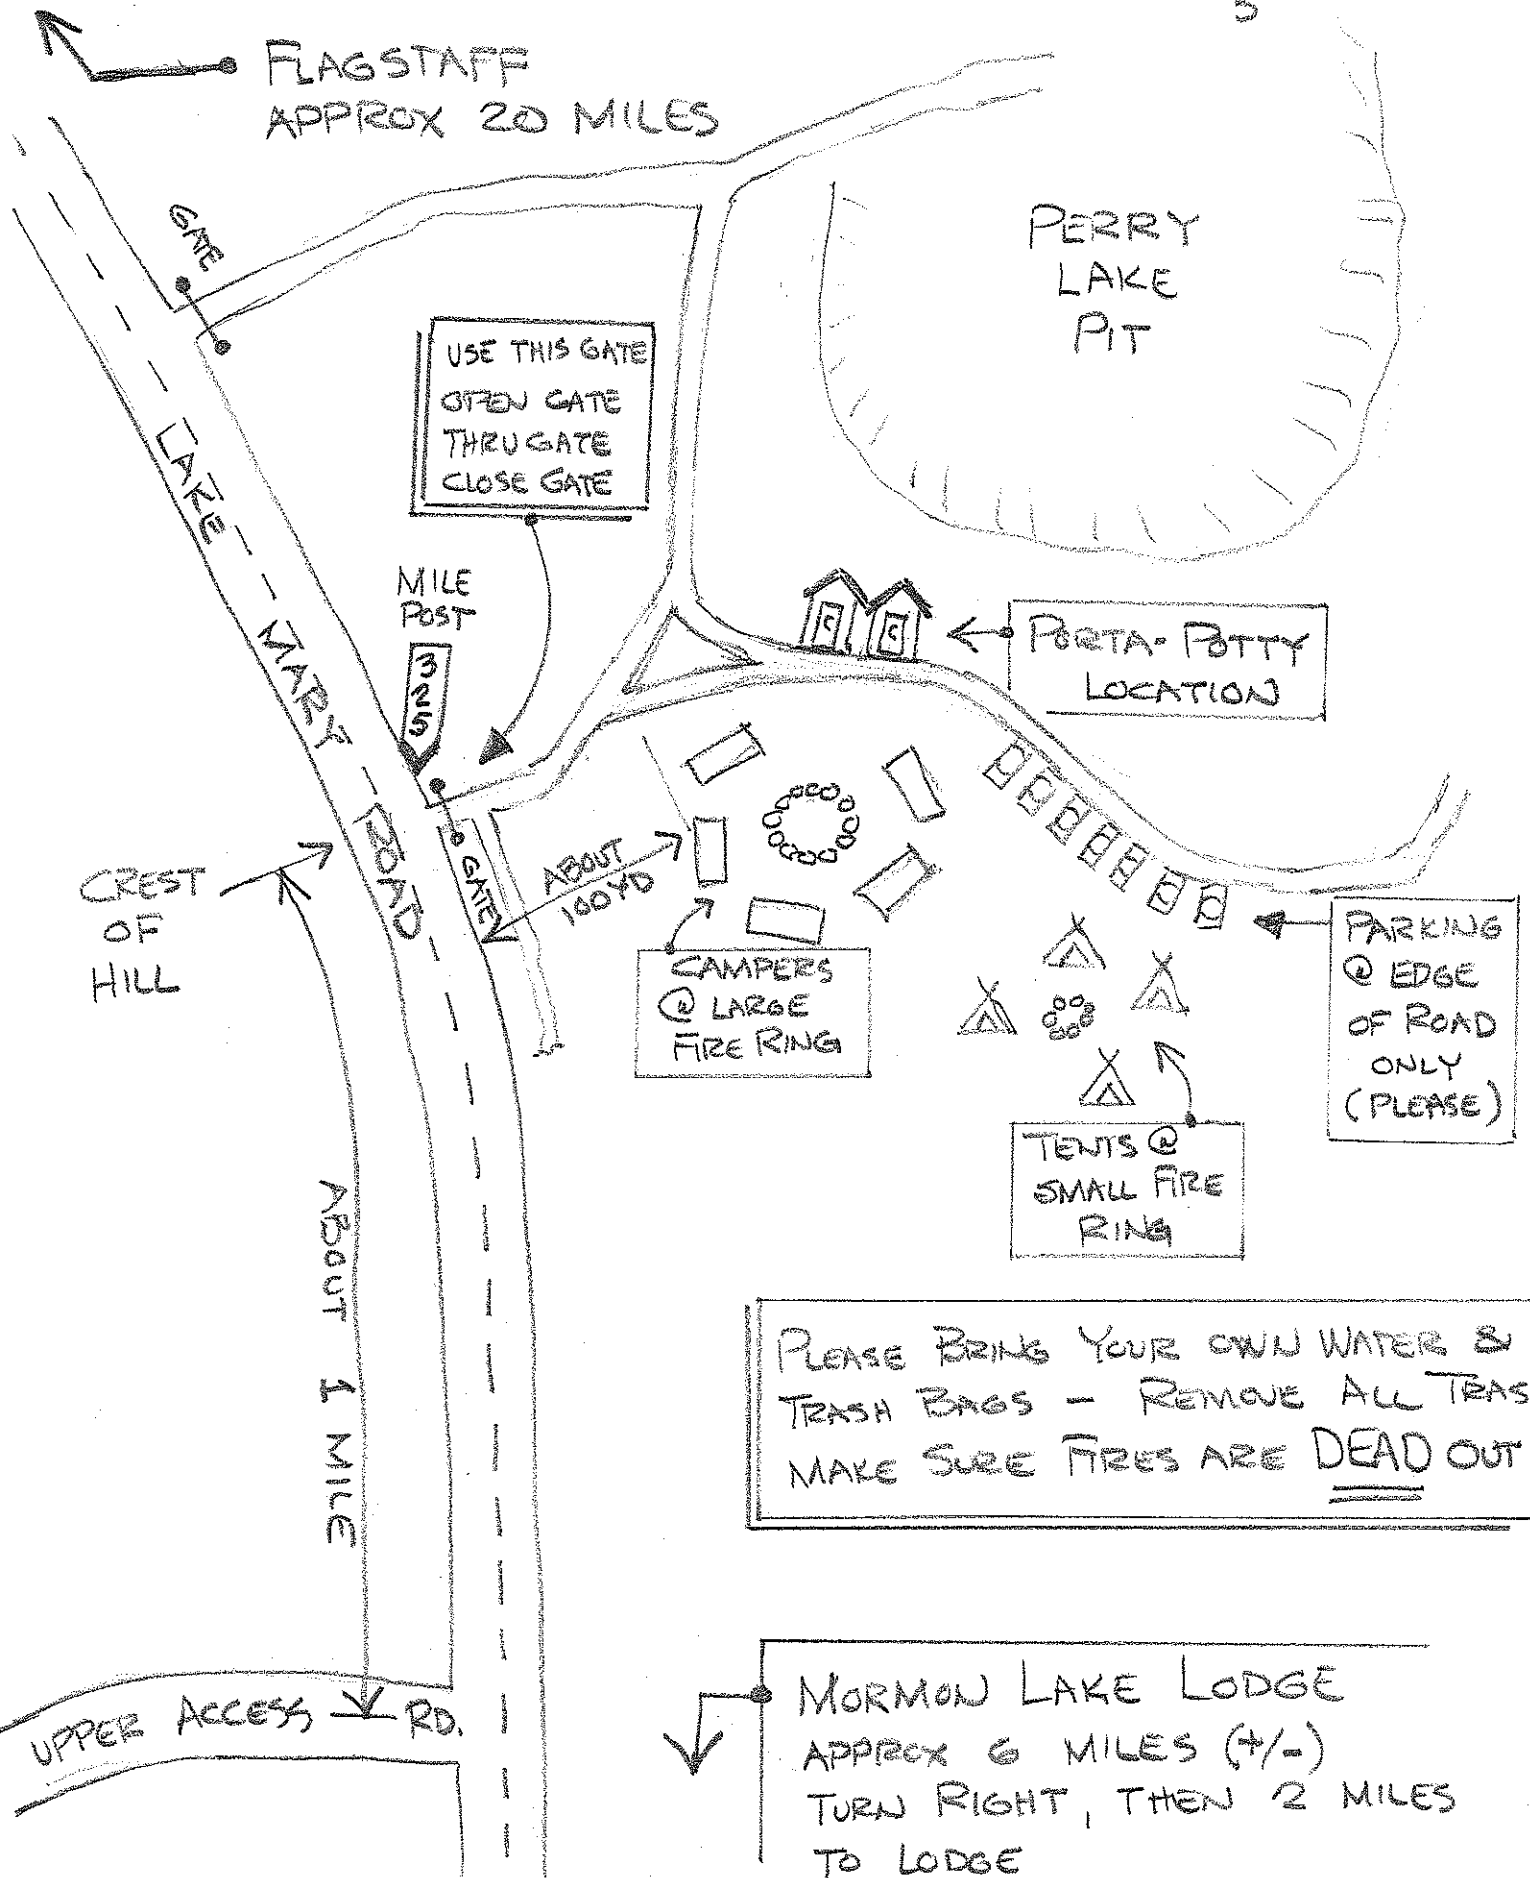 FLAGSTAFF
APPROX 20 MILES
GATE
PERRY
LAKE
PIT
USE THIS GATE
OPEN GATE
THRU GATE
CLOSE GATE
LAKE MARY ROAD
MILE
POST
325
PORTA-POTTY
LOCATION
GATE
ABOUT
100 YD
CREST
OF
HILL
CAMPERS
@ LARGE
FIRE RING
PARKING
@ EDGE
OF ROAD
ONLY
(PLEASE)
TENTS @
SMALL FIRE
RING
ABOUT 1 MILE
PLEASE BRING YOUR OWN WATER &
TRASH BAGS - REMOVE ALL TRAS
MAKE SURE FIRES ARE DEAD OUT
UPPER ACCESS RD.
MORMON LAKE LODGE
APPROX 6 MILES (+/-)
TURN RIGHT, THEN 2 MILES
TO LODGE